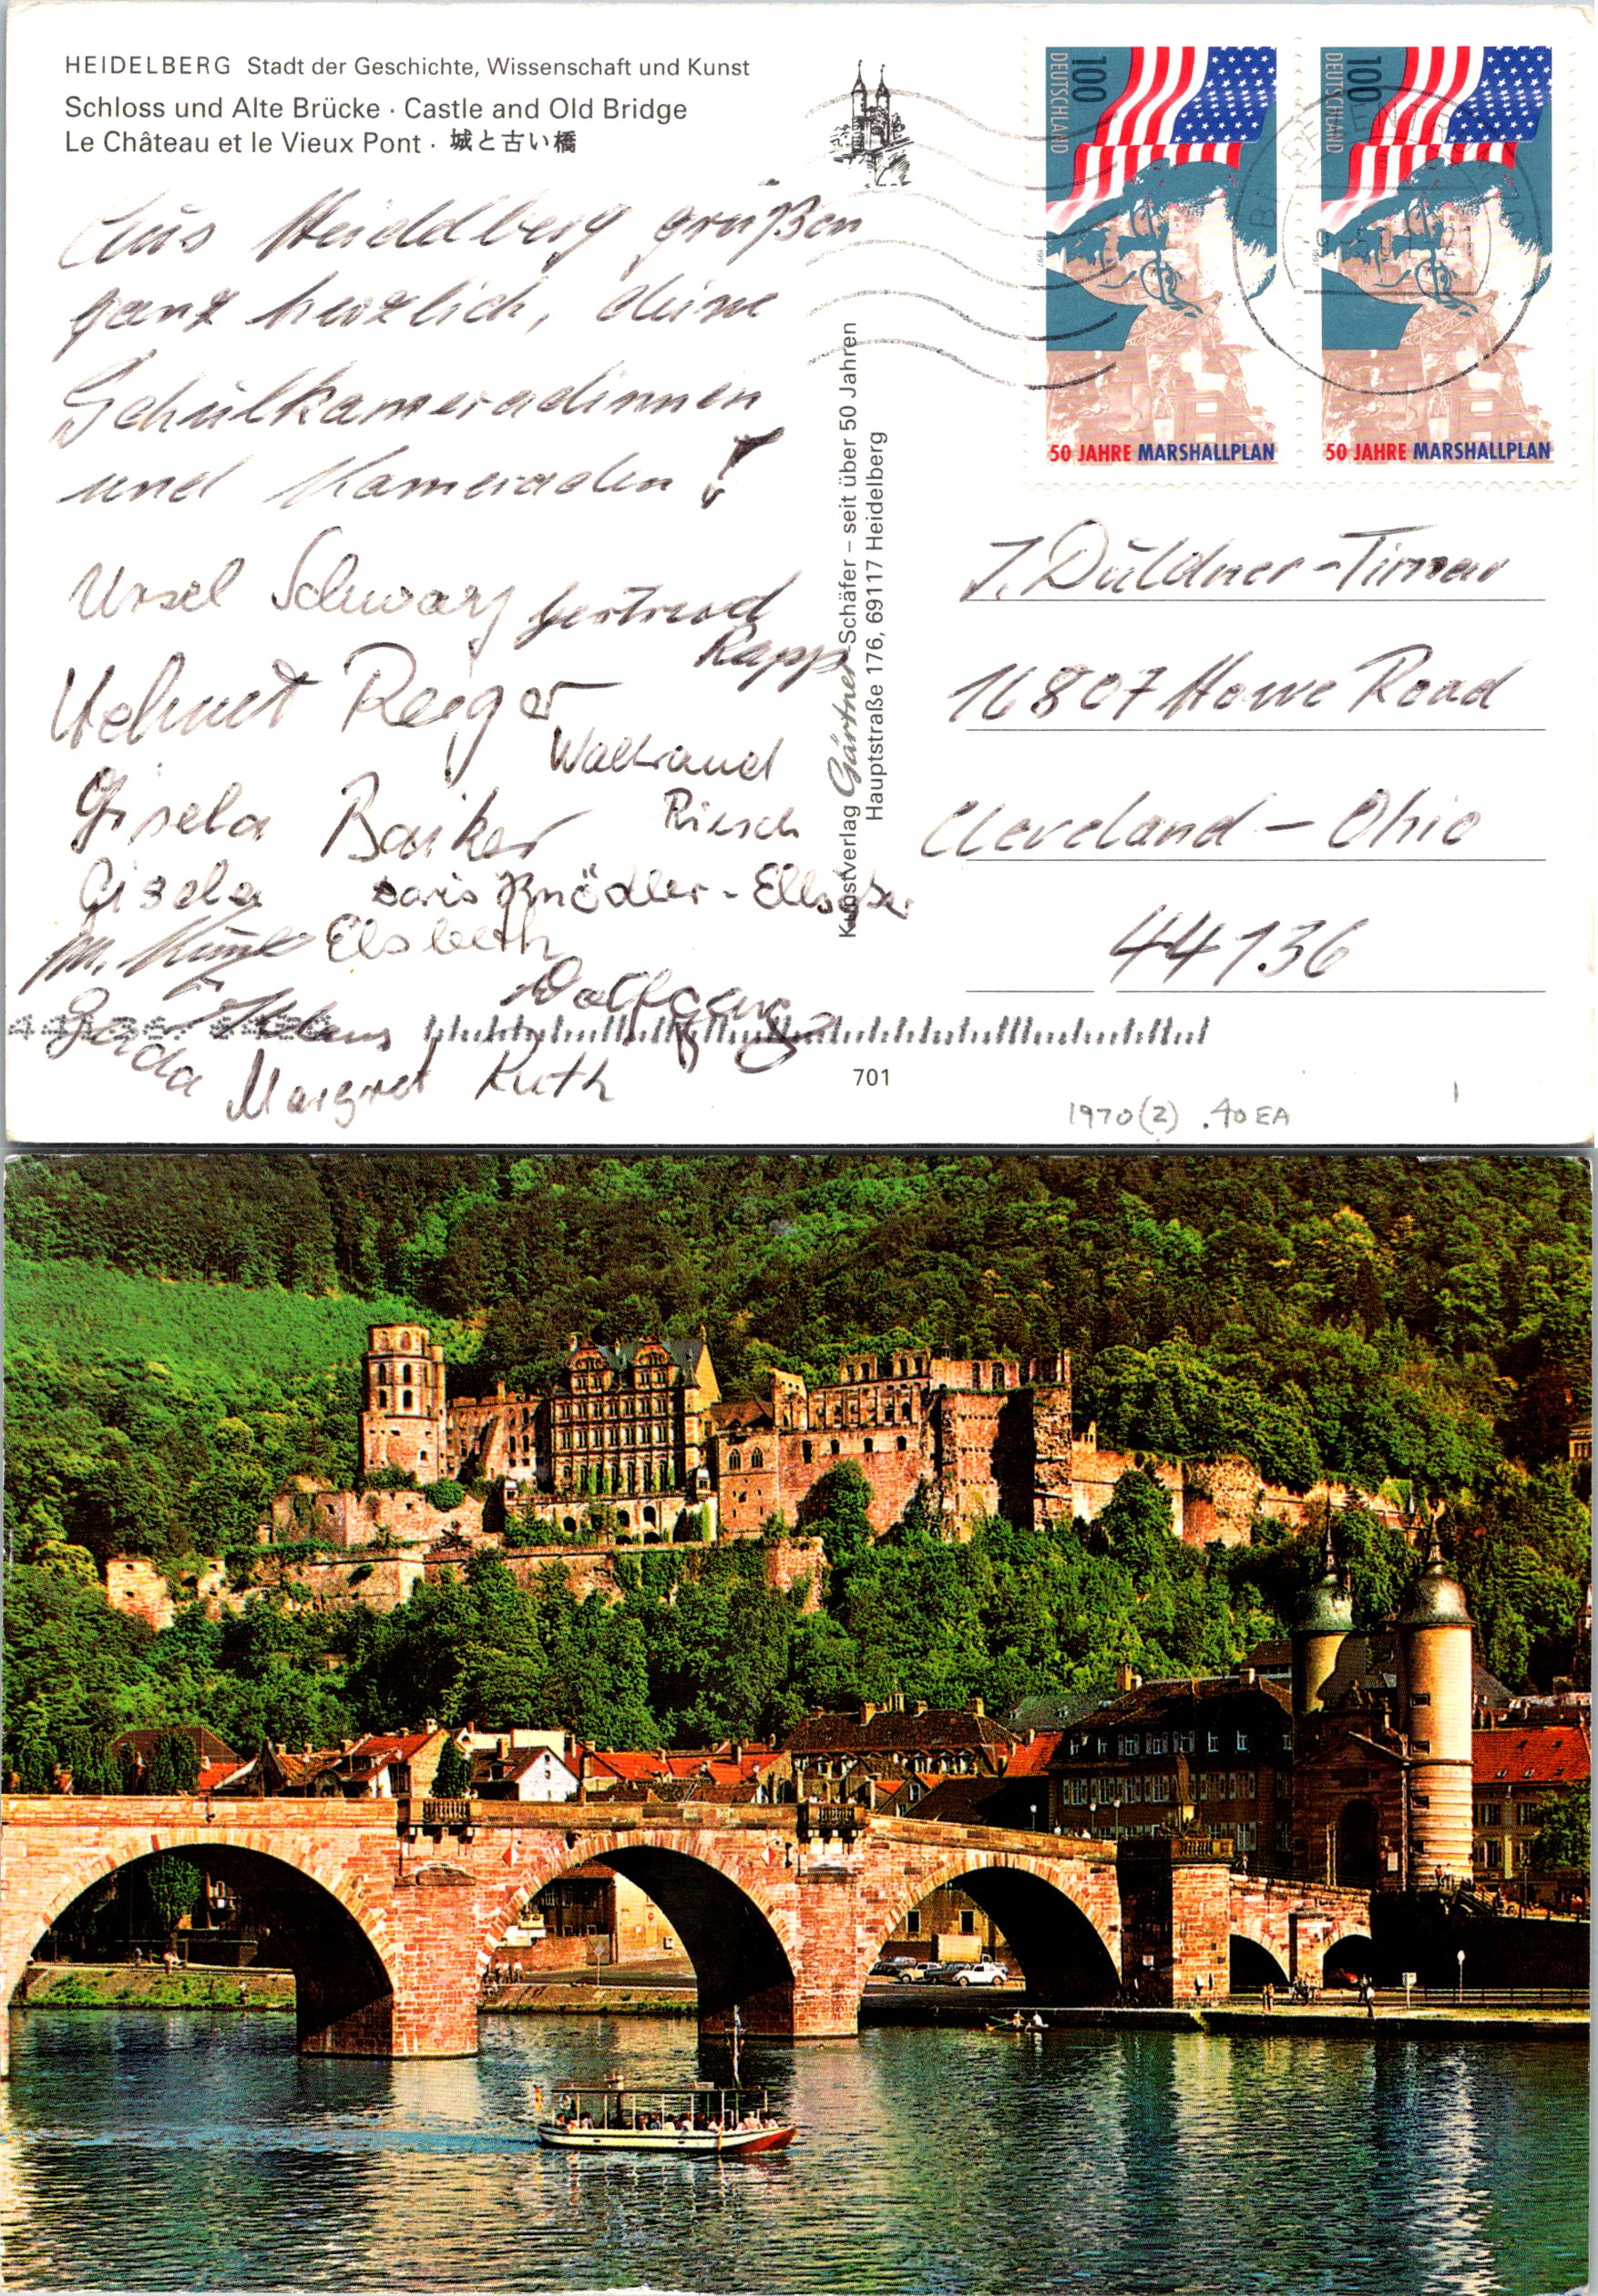 HEIDELBERG Stadt der Geschichte, Wissenschaft und Kunst
Schloss und Alte Brücke · Castle and Old Bridge
Le Château et le Vieux Pont · 城と古い橋
Aus Heideldberg grüßen
ganz herzlich, deine
Schulkameradinnen
und Kameraden!
Ursel Schwarz Gertrud
Rapp
Helmut Reiger
Waltraud
Gisela Barker Riesch
Gisela Doris Knödler-Ellsäßer
M. Elsbeth
Wolfgang
Gerda Klaus
Margret Ruth
Kunstverlag Gärtner-Schäfer – seit über 50 Jahren
Hauptstraße 176, 69117 Heidelberg
100 DEUTSCHLAND
1997
50 JAHRE MARSHALLPLAN
100 DEUTSCHLAND
1997
50 JAHRE MARSHALLPLAN
J. Duldner-Timar
16807 Howe Road
Cleveland – Ohio
44136
701
1970(2) .40 EA